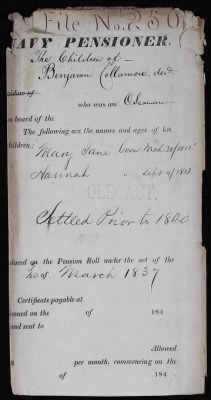 File No. 250
NAVY PENSIONER.
The Children of
Benjamin Collamore, decd.
who was an O. Seaman
on board of the
The following are the names and ages of his
children:
Mary Jane born Mch 28/1815
Hannah " Sept of 1813
OLD ACT.
Settled Prior to 1840
placed on the Pension Roll under the act of the
3d of March 1837
Certificate payable at
issued on the of 184
and sent to
Allowed
per month, commencing on the
of 184